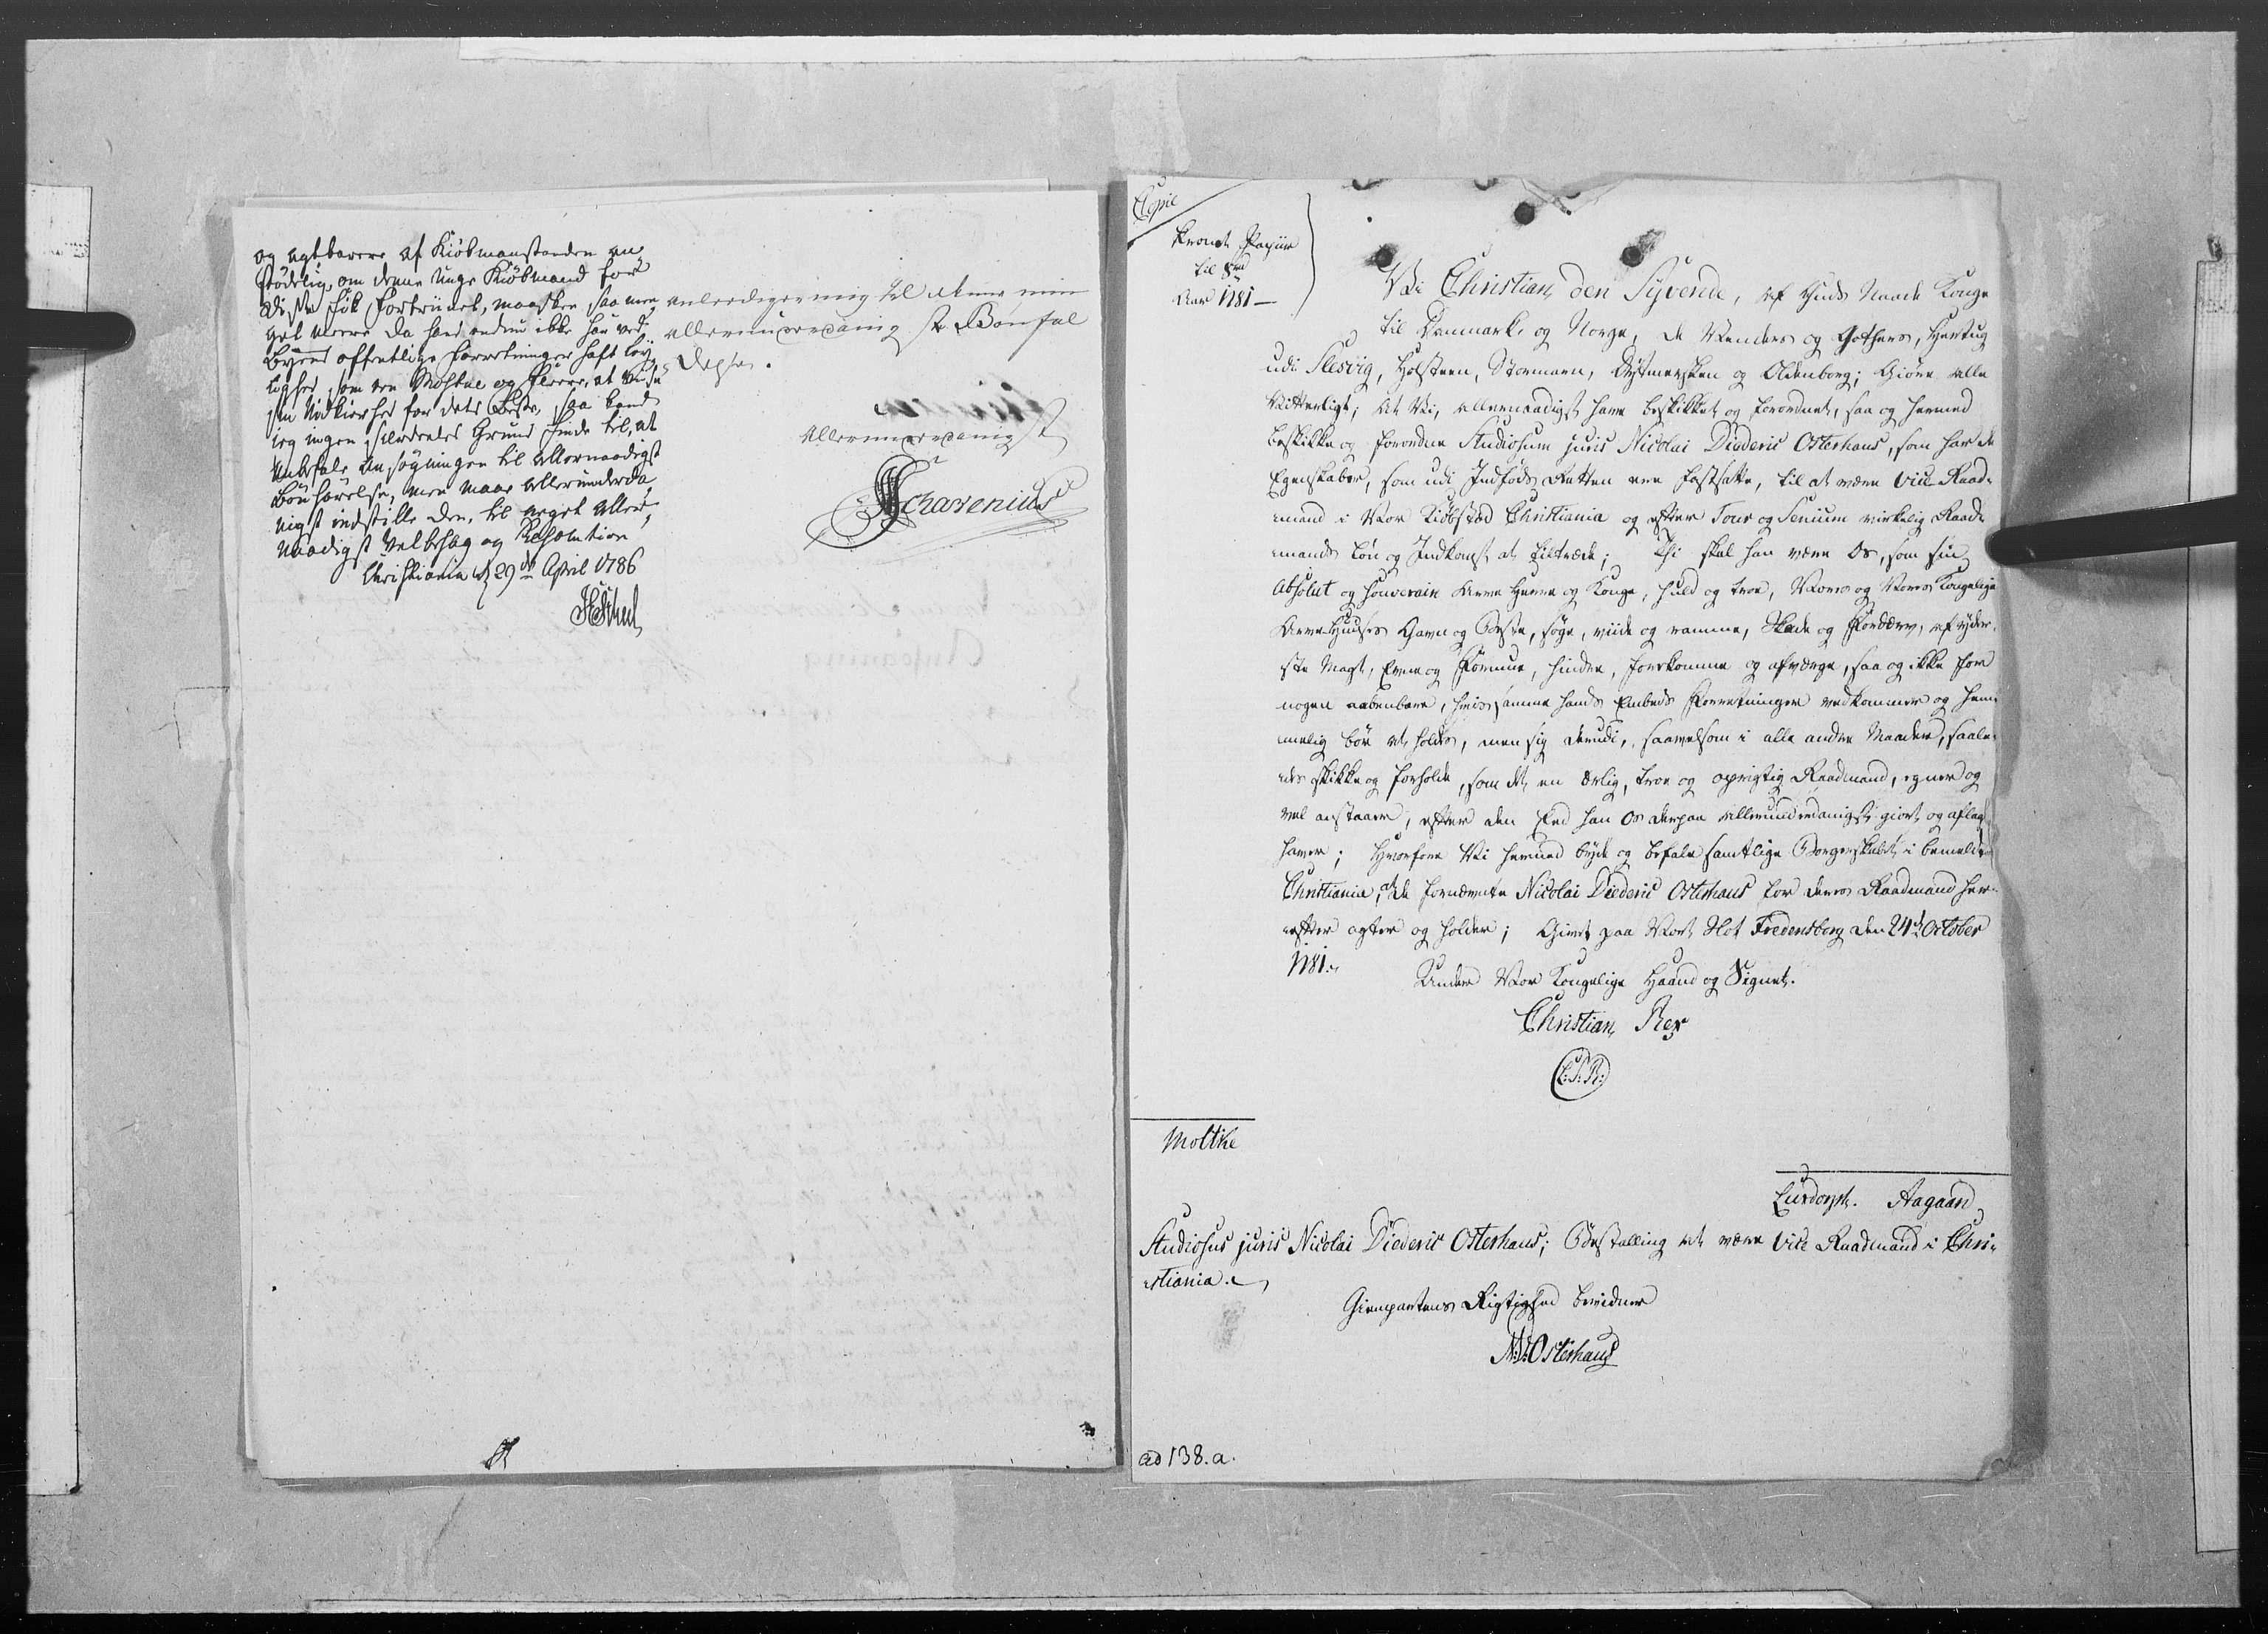 og agtbarere af Kiöbmanstanden an
stödelig, om denne unge Kiöbmand for
disse fik Fortrinnet, maaskee saa me
get meere da hand endnu ikke har ved
Byens offentlige Forretninger haft Ley
lighed, som een Moestue og fleere, at viise
sin Nidkierhed for dets Beste, saa kand
jeg ingen sierdeeles Grund finde til, at
Anbefale Ansögningen til allernaadigst
Bönhörelse, men maae allerunderda
nigst indstille den, til eget aller
naadigst Velbehag og Resolution
Christiania d 29de April 1786
anleedige mig til denne min
allerunderdanigste Bönfal
delse.
Allerunderdanigst
Scharenius
Copie
Kronet Papiir
til
Aar 1781
Vi Christian den Syvende, af Guds Naade Konge
til Danmark og Norge, de Wenders og Gothers, Hertug
udi Slesvig, Holsteen, Stormarn, Dytmersken og Oldenborg; Giöre alle
Vitterligt; At Vi, allernaadigst have beskikket og forordnet, saa og hermed
beskikke og forordne Studiosum juris Nicolai Diederic Osterhaus, som har de
Egenskaber, som udi Indföds Retten ere fastsatte, til at være Vice Raad-
mand i Vor Kiöbstæd Christiania og efter Tour og Senium virkelig Raad-
mands Lön og Indkomst at tiltræde; Thi skal han være Os, som sin
Absolut og Souverain Arve Herre og Konge, huld og troe, Vores og Vores Kongelige
Arve-Huuses Gavn og Beste, söge, viide og ramme, Skade og Fordærv, af yder-
ste Magt, Evne og Formue, hindre, forekomme og afværge, saa og ikke for
nogen aabenbare, hvis samme hands Embeds Forretninger vedkommer og hem-
melig bör at holdes, men sig derudi, saavelsom i alle andre Maader, saale-
des skikke og forholde, som det en ærlig, troe og oprigtig Raadmand, egner og
vel anstaaer, efter den Eed han Os derpaa allerunderdanigst giort og aflagt
haver; Hvorfore Vi hermed byde og befale samtlige Borgerskabet i bemeldte
Christiania, at de fornævnte Nicolai Diederic Osterhaus for deres Raadmand her-
efter agter og holder; Givet paa Vort Slot Fredensborg den 24d October
1781.
Under Vor Kongelige Haand og Signet.
Christian Rex
(L: S: R:)
Moltke
Luxdorph. Aagaard
Studiosus juris Nicolai Diederic Osterhaus; Bestalling at være Vice Raadmand i Chri-
stiania.
Gienpartens Rigtighed bevidner
N: D: Osterhaus
ad 138. a.